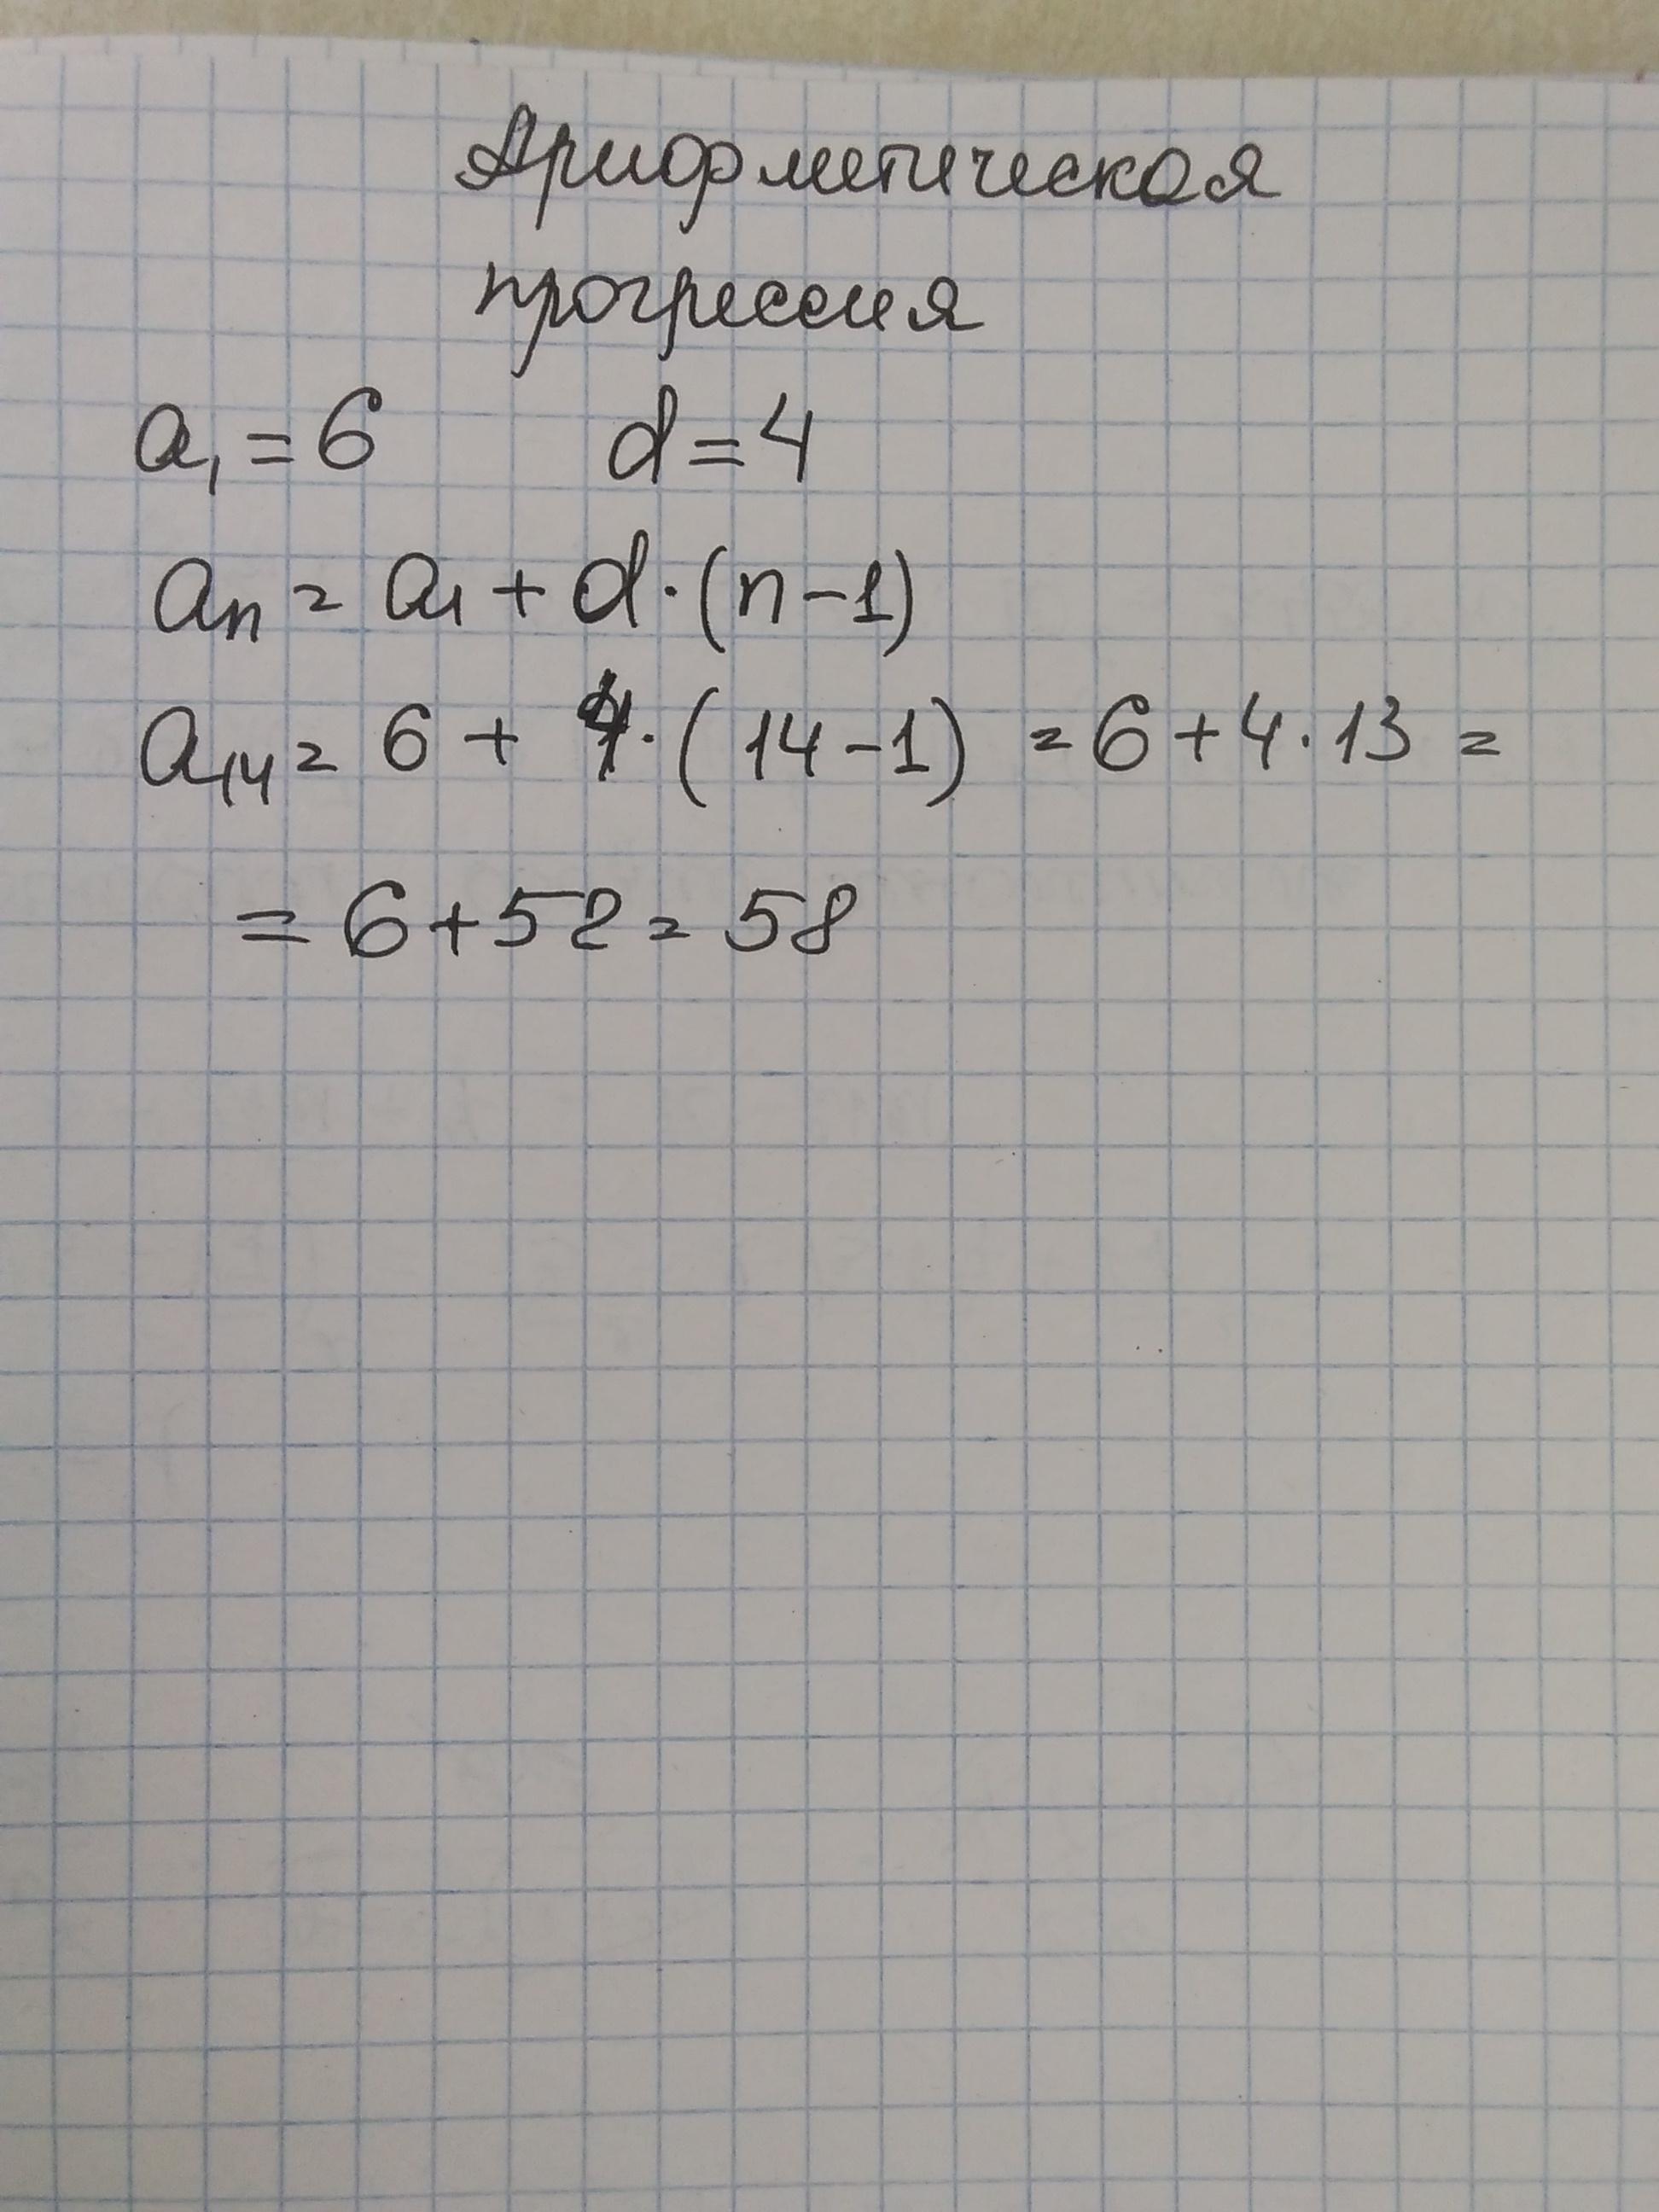 Арифметическая
прогрессия
a₁ = 6 d = 4
aₙ = a₁ + d · (n - 1)
a₁₄ = 6 + 4 · (14 - 1) = 6 + 4 · 13 =
= 6 + 52 = 58